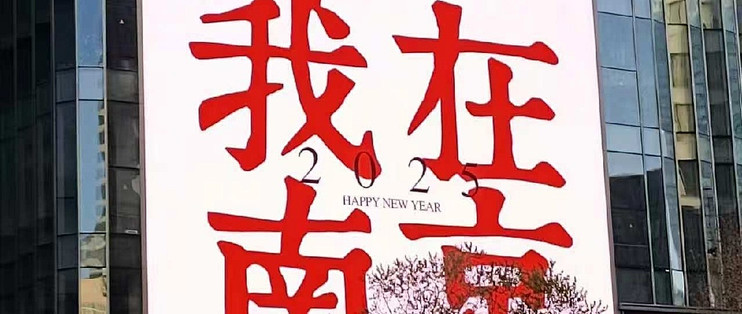 我在
2025
HAPPY NEW YEAR
南京